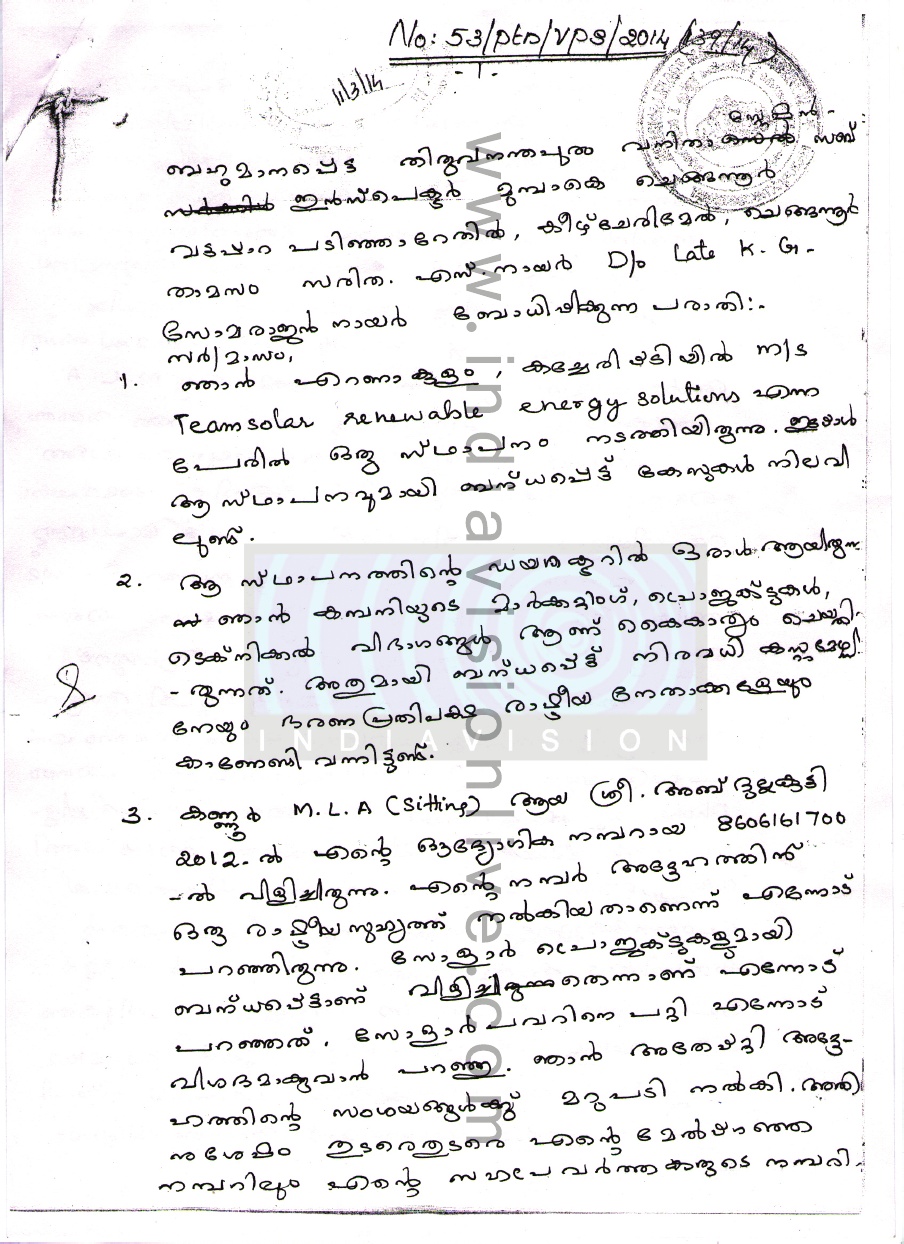 No: 53/Ptn/VPS/2014 (39/14)
- 1 -
11/3/14
സ്റ്റേഷൻ -
ബഹുമാനപ്പെട്ട തിരുവനന്തപുരം വനിതാ സെൽ സബ്
ഇൻസ്പെക്ടർ മുമ്പാകെ ചെങ്ങന്നൂർ
വട്ടപ്പാറ പടിഞ്ഞാറേതിൽ, കീഴ്ചേരിമേൽ, ചെങ്ങന്നൂർ
താമസം സരിത. എസ്. നായർ D/o Late K. G.
സോമരാജൻ നായർ ബോധിപ്പിക്കുന്ന പരാതി:-
സർ/മാഡം,
1. ഞാൻ എറണാകുളം, കച്ചേരിപ്പടിയിൽ M/s
Teamsolar renewable energy solutions എന്ന
പേരിൽ ഒരു സ്ഥാപനം നടത്തിയിരുന്നു. ഇപ്പോൾ
ആ സ്ഥാപനവുമായി ബന്ധപ്പെട്ട് കേസുകൾ നിലവി
ലുണ്ട്.
2. ആ സ്ഥാപനത്തിന്റെ ഡയറക്ടറിൽ ഒരാൾ ആയിരുന്ന
ഞാൻ കമ്പനിയുടെ മാർക്കറ്റിംഗ്, പ്രൊജക്ട്ടുകൾ,
ടെക്നിക്കൽ വിഭാഗങ്ങൾ ആണ് കൈകാര്യം ചെയ്തി-
- രുന്നത്. അതുമായി ബന്ധപ്പെട്ട് നിരവധി കസ്റ്റമേഴ്സി
നേയും ഭരണ പ്രതിപക്ഷ രാഷ്ട്രീയ നേതാക്കളേയും
കാണേണ്ടി വന്നിട്ടുണ്ട്.
INDIAVISION
3. കണ്ണൂർ M.L.A (Sitting) ആയ ശ്രീ. അബ്ദുള്ളകുട്ടി
2012-ൽ എന്റെ ഔദ്യോഗിക നമ്പറായ 8606161700
-ൽ വിളിച്ചിരുന്നു. എന്റെ നമ്പർ അദ്ദേഹത്തിന്
ഒരു രാഷ്ട്രീയ സുഹൃത്ത് നൽകിയതാണെന്ന് എന്നോട്
പറഞ്ഞിരുന്നു. സോളാർ പ്രൊജക്ട്ടുകളുമായി
ബന്ധപ്പെട്ടാണ് വിളിച്ചിരുന്നതെന്നാണ് എന്നോട്
പറഞ്ഞത്. സോളാർ പവറിനെ പറ്റി എന്നോട്
വിശദമാക്കുവാൻ പറഞ്ഞു. ഞാൻ അതേപ്പറ്റി അദ്ദേ-
ഹത്തിന്റെ സംശയങ്ങൾക്ക് മറുപടി നൽകി. അതി
നുശേഷം തുടരെതുടരെ എന്റെ മേൽപ്പറഞ്ഞ
നമ്പറിലും എന്റെ സഹപ്രവർത്തകരുടെ നമ്പരി-
www.indiavisionlive.com